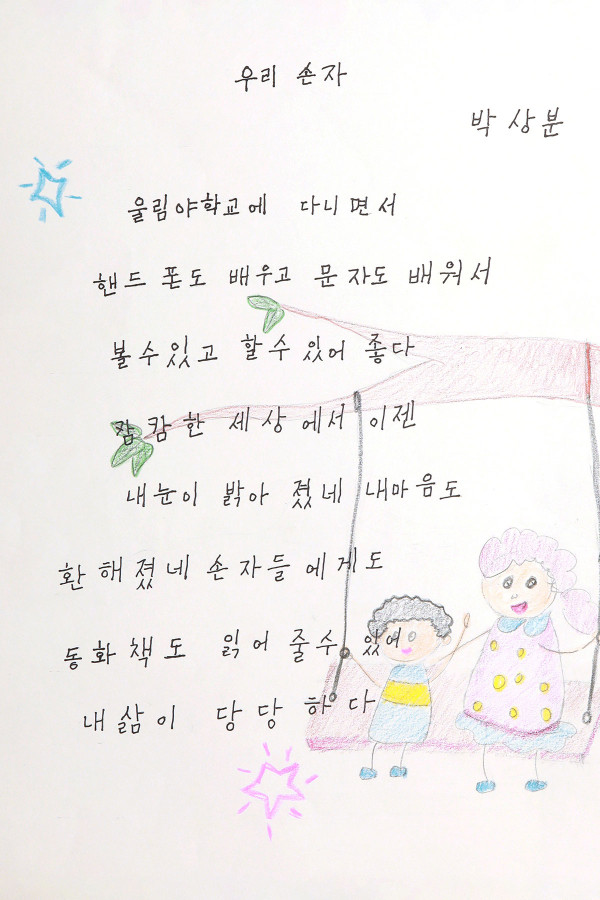 우리 손자
박상분
울림야학교에 다니면서
핸드폰도 배우고 문자도 배워서
볼수있고 할수있어 좋다
캄캄한 세상에서 이젠
내눈이 밝아 졌네 내마음도
환해졌네 손자들에게도
동화책도 읽어 줄수 있어
내삶이 당당하다